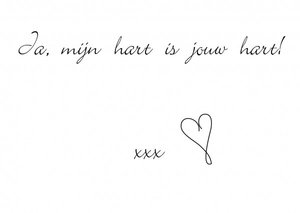 Ja, mijn hart is jouw hart!
xxx